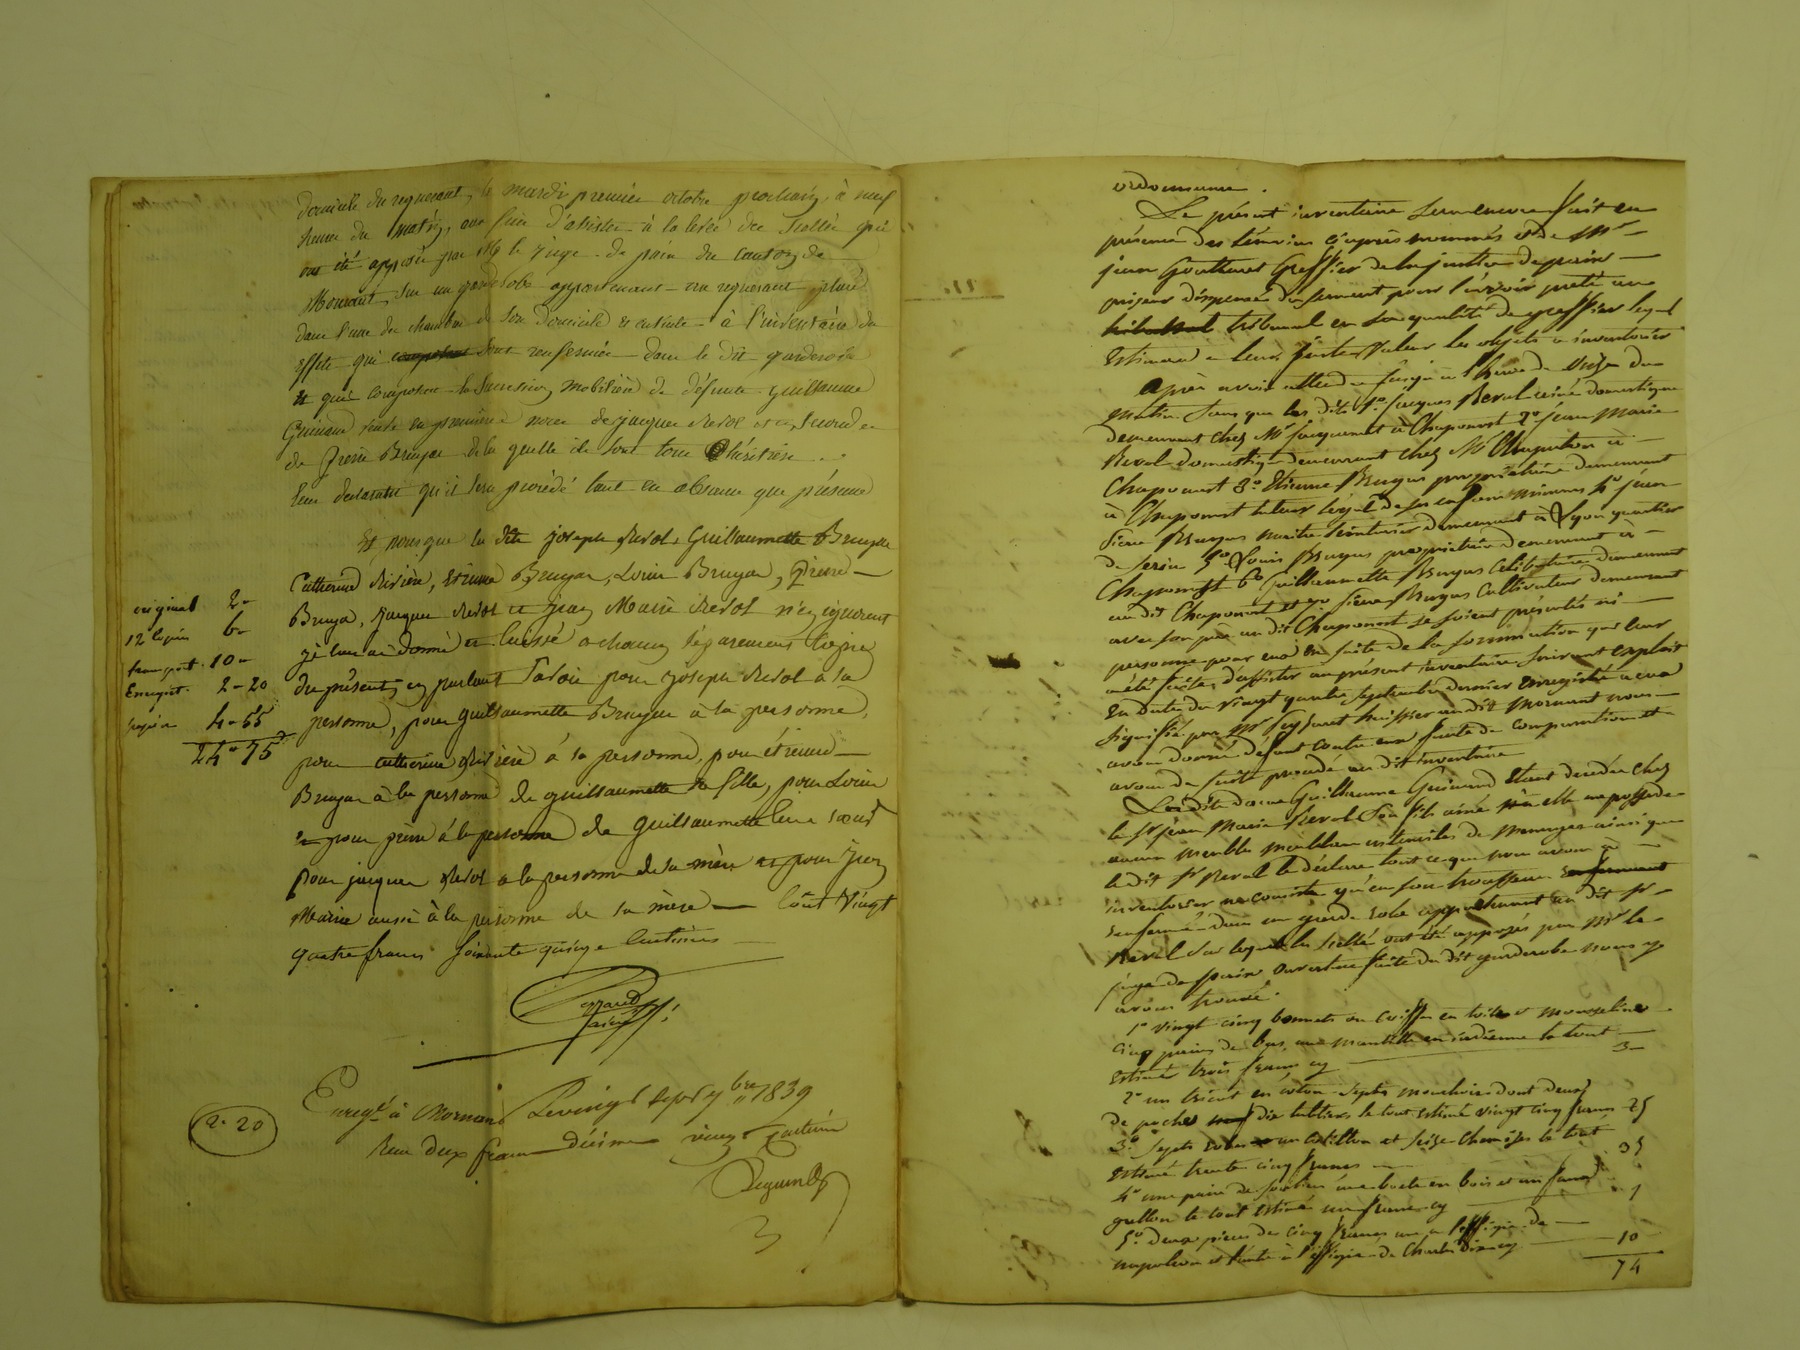 domicile du requerant, le mardi premier octobre prochain, à neuf
heures du matin, aux fins d'assister à la levée des scellés qui
ont été apposés par M le juge de paix du canton de
Mornant, sur un garderobe appartenant au requerant, placé
dans l'une des chambres de son domicile et ensuite à l'inventaire des
effets qui sont renfermés dans le dit garderobe
et qui composent la succession mobilière de défunte Guillaume
Guinand veuve en première noces de jacques Revol et en secondes
de Pierre Bruyas de la quelle ils sont tous héritiers
leur déclarant qu'il sera procédé tant en absence que présence
Et pour que les dits joseph Revol, Guillaumette Bruyas
Catherine Rivière, Etienne Bruyas, Louis Bruyas, Pierre
Bruyas, Jacques Revol et Jean Marie Revol n'en ignorent
je leur ai donné et laissé a chacun séparément copie
du présent, en parlant savoir pour joseph Revol à sa
personne, pour guillaumette Bruyas à sa personne,
pour catherine Rivière à sa personne, pour étienne
Bruyas à la personne de guillaumette sa fille, pour Louis
et pour pierre à la personne de Guillaumette leur soeur
pour jacques Revol a la personne de sa mère et pour Jean
Marie aussi à la personne de sa mère Coût vingt
quatre francs soixante quinze centimes
original 2-
12 copies 6-
transport 10-
Enregist. 2-20
4-55
24-75
Enregt à Mornant Le vingt sept 7bre 1839
Reçu deux francs décime vingt centimes
2-20
ordonnance.
Le présent inventaire sera encore fait en
présence des témoins ci après nommés et de Mr
jean Gouthard Greffier de la justice de paix
priseur dispensé du serment pour l'avoir prêté au
tribunal en sa qualité de greffier lequel
Estimera a leur juste valeur les objets a inventorier
Après avoir attendu jusqu'à l'heure de onze du
matin sans que les dits 1o jacques Revol ainé domestique
demeurant chez Mr jacquemet à Chaponost 2o jean Marie
Revol domestique demeurant chez Mr Chaputon à
Chaponost 3o Etienne Bruyas propriétaire demeurant
à Chaponost tuteur légal de ses enfans mineurs 4o jean
Pierre Bruyas maitre teinturier demeurant à Lyon quartier
de serin 5o Louis Bruyas propriétaire demeurant à
Chaponost 6o Guillaumette Bruyas célibataire demeurant
au dit Chaponost et 7o Pierre Bruyas cultivateur demeurant
avec son père au dit Chaponost se soient présentés ni
personne pour eux en suite de la sommation qui leur
a été faite, d'assister au présent inventaire suivant exploit
en date du vingt quatre septembre dernier Enregistré a eux
signifié par Mr huissier au dit Mornant nous
avons donné défaut contre eux faute de comparution et
avons de suite procédé au dit inventaire
La dite dame Guillaume Guinand étant décédée chez
le sr jean Marie Revol son fils ainé elle ne possède
aucun meuble meublant ustensiles de menages ainsi que
le dit sr Revol le déclare tout ce que nous avons à
inventorier ne consiste qu'en son trousseau
renfermé dans un garde robe appartenant au dit sr
Revol sur lequel les scellés ont été apposés par Mr le
juge de paix ouverture faite du dit garderobe nous y
avons trouvé.
1o vingt cinq bonnets ou coiffes en toile et mousseline
cinq paires de bas, une mantille en indienne le tout
Estimé trois francs cy 3-
2o un tricot en coton septs mouchoirs dont deux
de poches dix tabliers le tout estimé vingt cinq francs 25
3o septs robes un cotillon et seize chemises le tout
Estimé trente cinq francs 35
4o une paire de souliers une boete en bois et un
grellon le tout estimé un franc cy 1
5o deux pieces de cinq francs une a l'effigie de
napoleon et l'autre à l'effigie de Charles dix cy 10
74